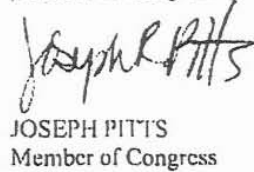 Joseph R Pitts
JOSEPH PITTS
Member of Congress